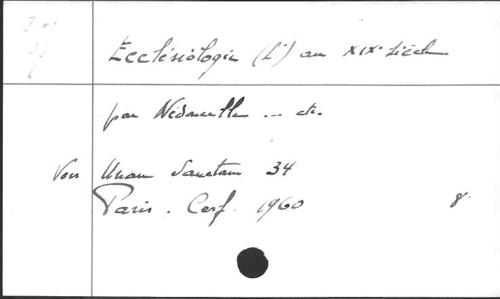 Ecclésiologie (L') au XIXe siècle
par Nédoncelle ... etc.
Voir Unam Sanctam 34
Paris. Cerf. 1960 8°